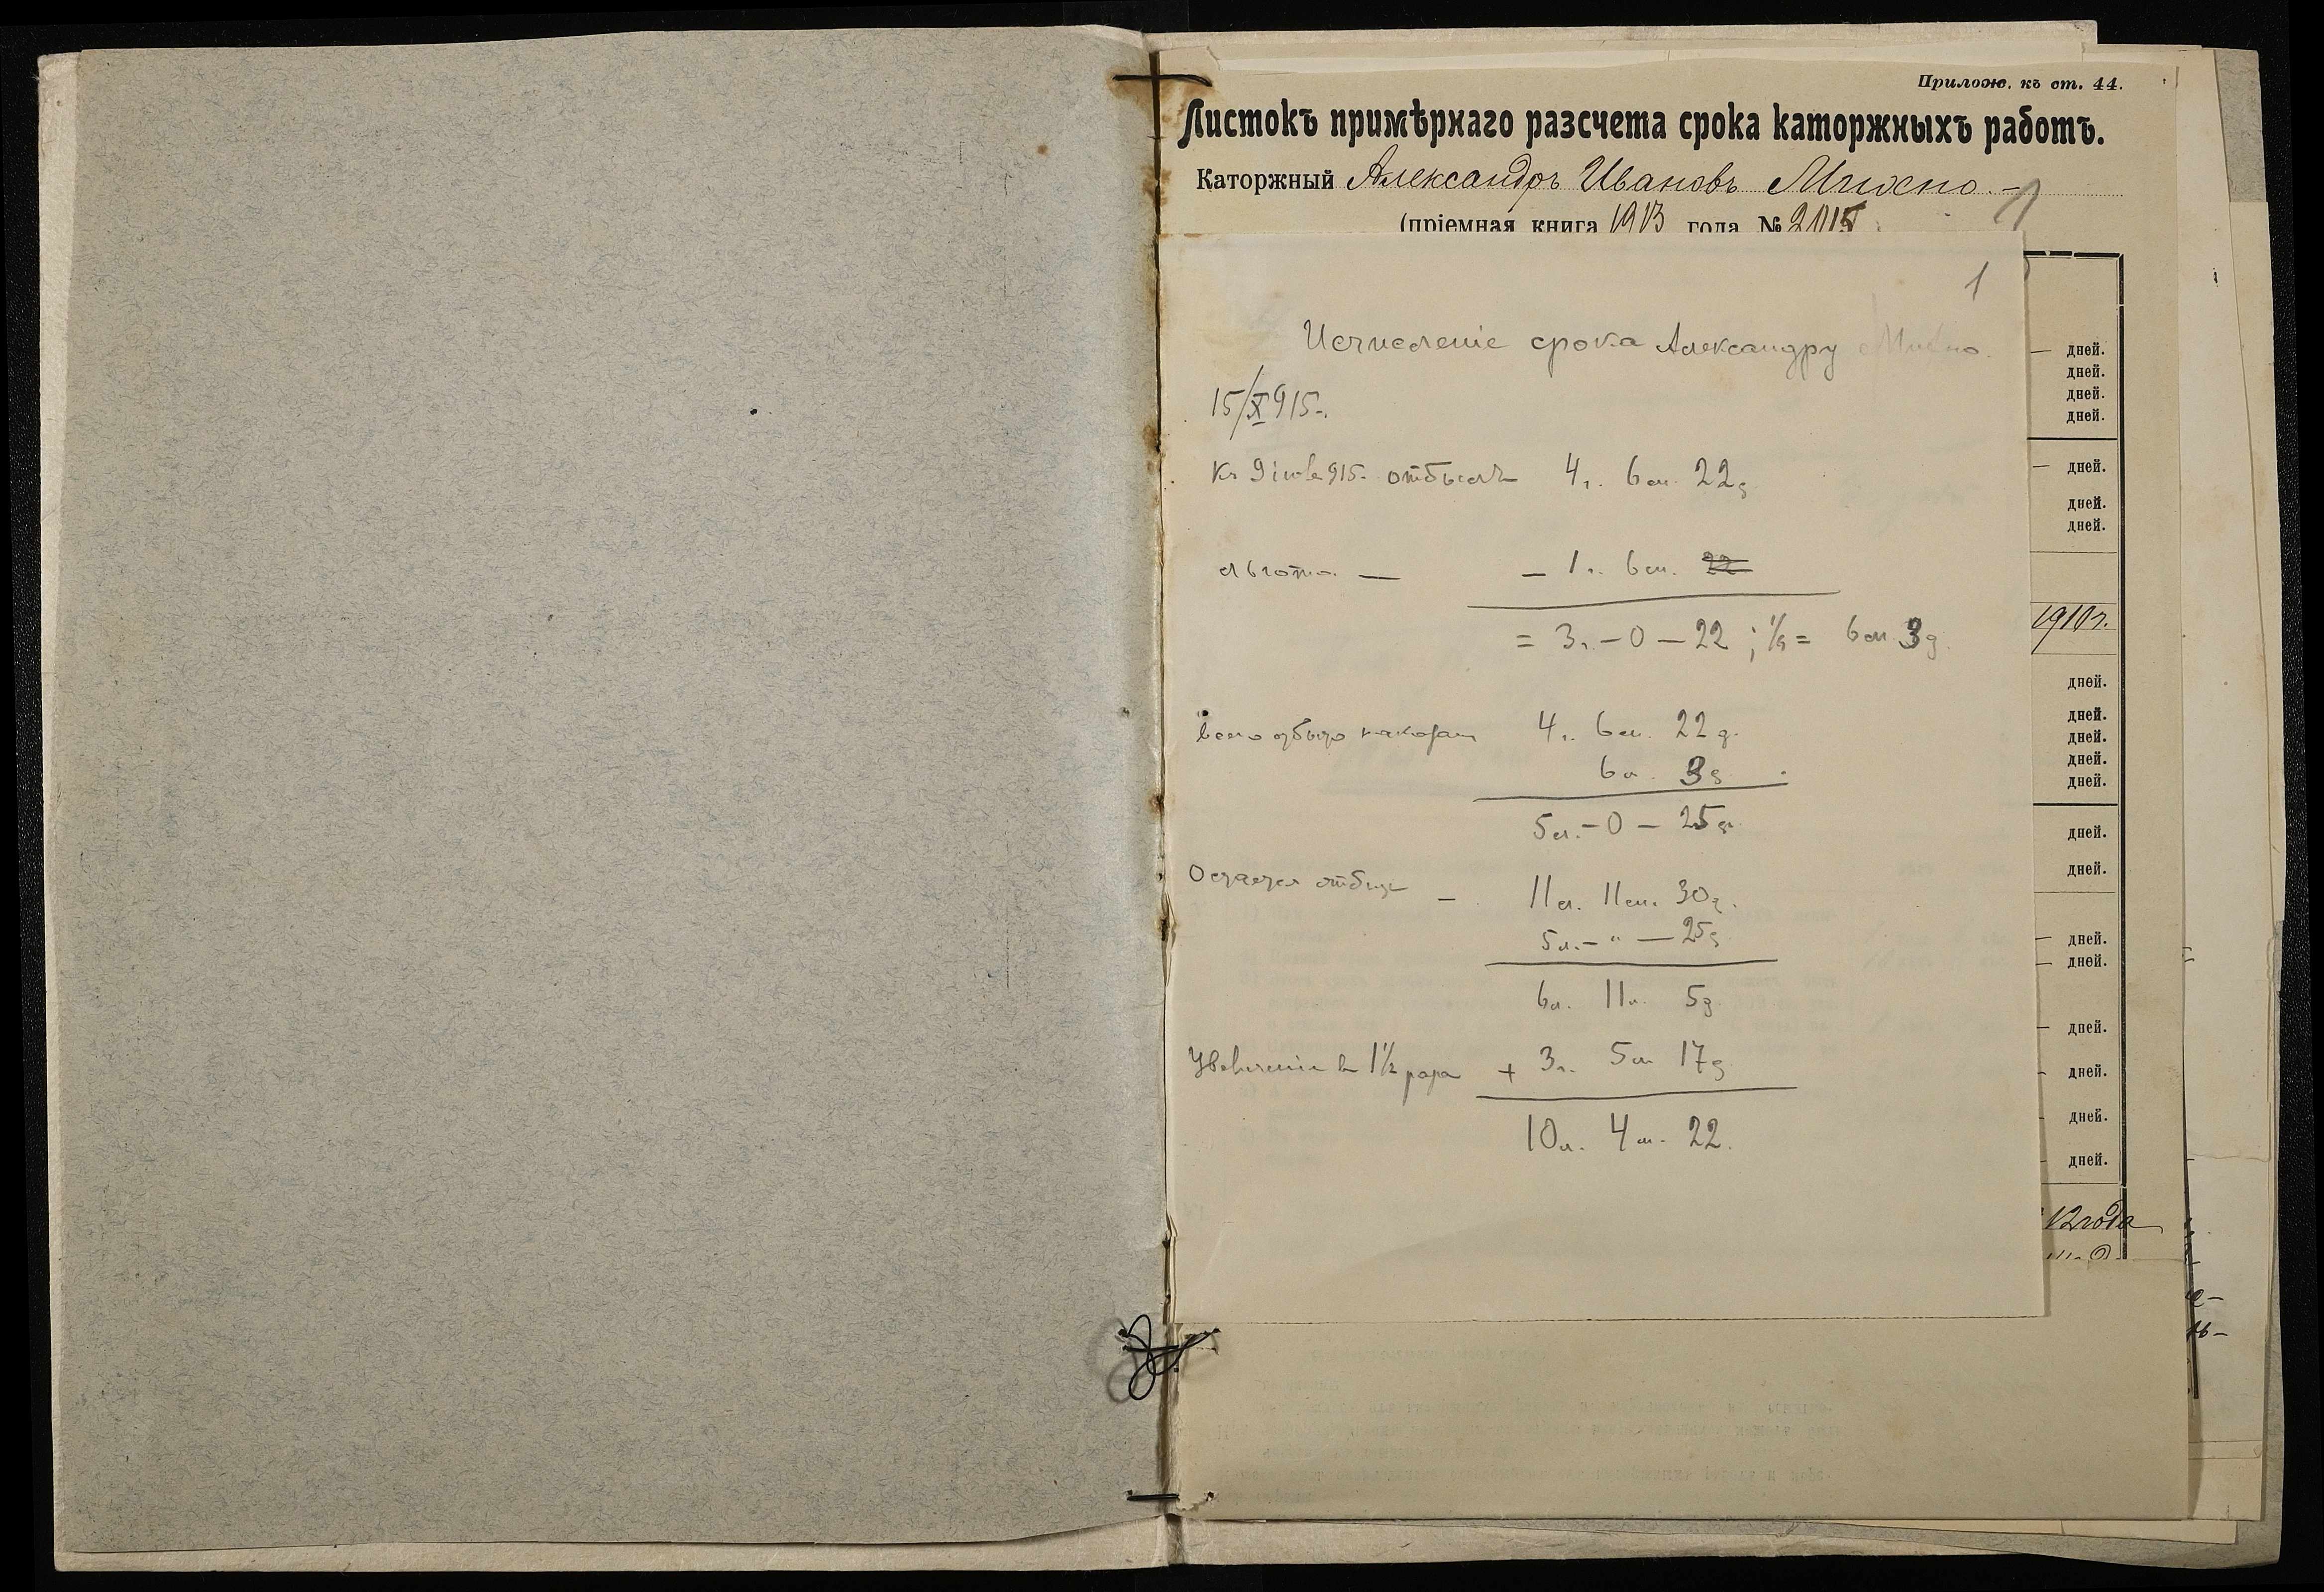 Прилож. къ ст. 44.
Листокъ примѣрнаго разсчета срока каторжныхъ работъ.
Каторжный Александръ Ивановъ
(пріемная книга 1913 года № 2015
1
Исчисленіе срока Александру
15/X 915.
Къ 9 915. отбылъ 4 г. 6 м. 22 д
льгота — – 1 г. 6 м. 22
= 3 г. – 0 – 22 ; 1/6 = 6 м. 3 д.
всего 4 г. 6 м. 22 д.
6 м. 3 д
5 л. – 0 – 25 д.
Остается отбыть – 11 л. 11 м. 30 д.
5 л. – " — 25 д
6 л. 11 м. 5 д
Увеличеніе въ 1½ раза + 3 г. 5 м 17 д
10 л. 4 м. 22.
— дней.
дней.
дней.
дней.
— дней.
дней.
дней.
1910 г.
дней.
дней.
дней.
дней.
дней.
дней.
дней.
— дней.
— дней.
— дней.
– дней.
– дней.
– дней.
12 года